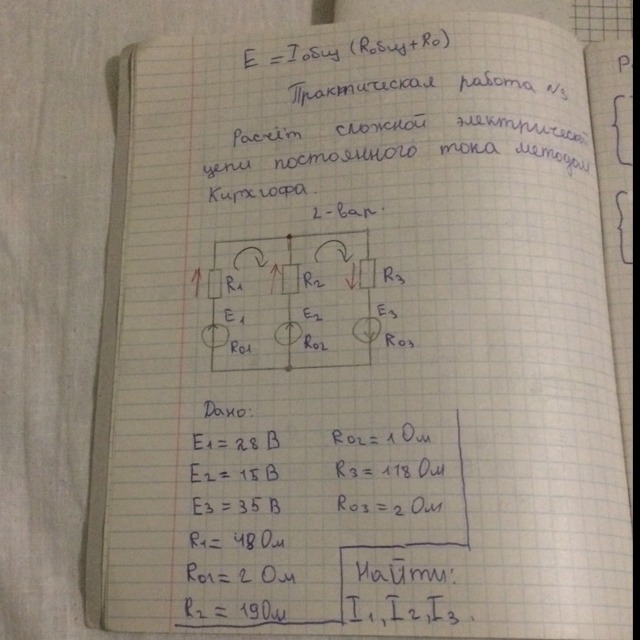 E = Iобщ (Rобщ + R0)
Практическая работа №3
Расчёт сложной электрической
цепи постоянного тока методом
Кирхгофа.
2-вар.
R1 R2 R3
E1 E2 E3
R01 R02 R03
Дано:
E1 = 28 В R02 = 1 Ом
E2 = 15 В R3 = 118 Ом
E3 = 35 В R03 = 2 Ом
R1 = 48 Ом
R01 = 2 Ом Найти:
R2 = 19 Ом I1, I2, I3.